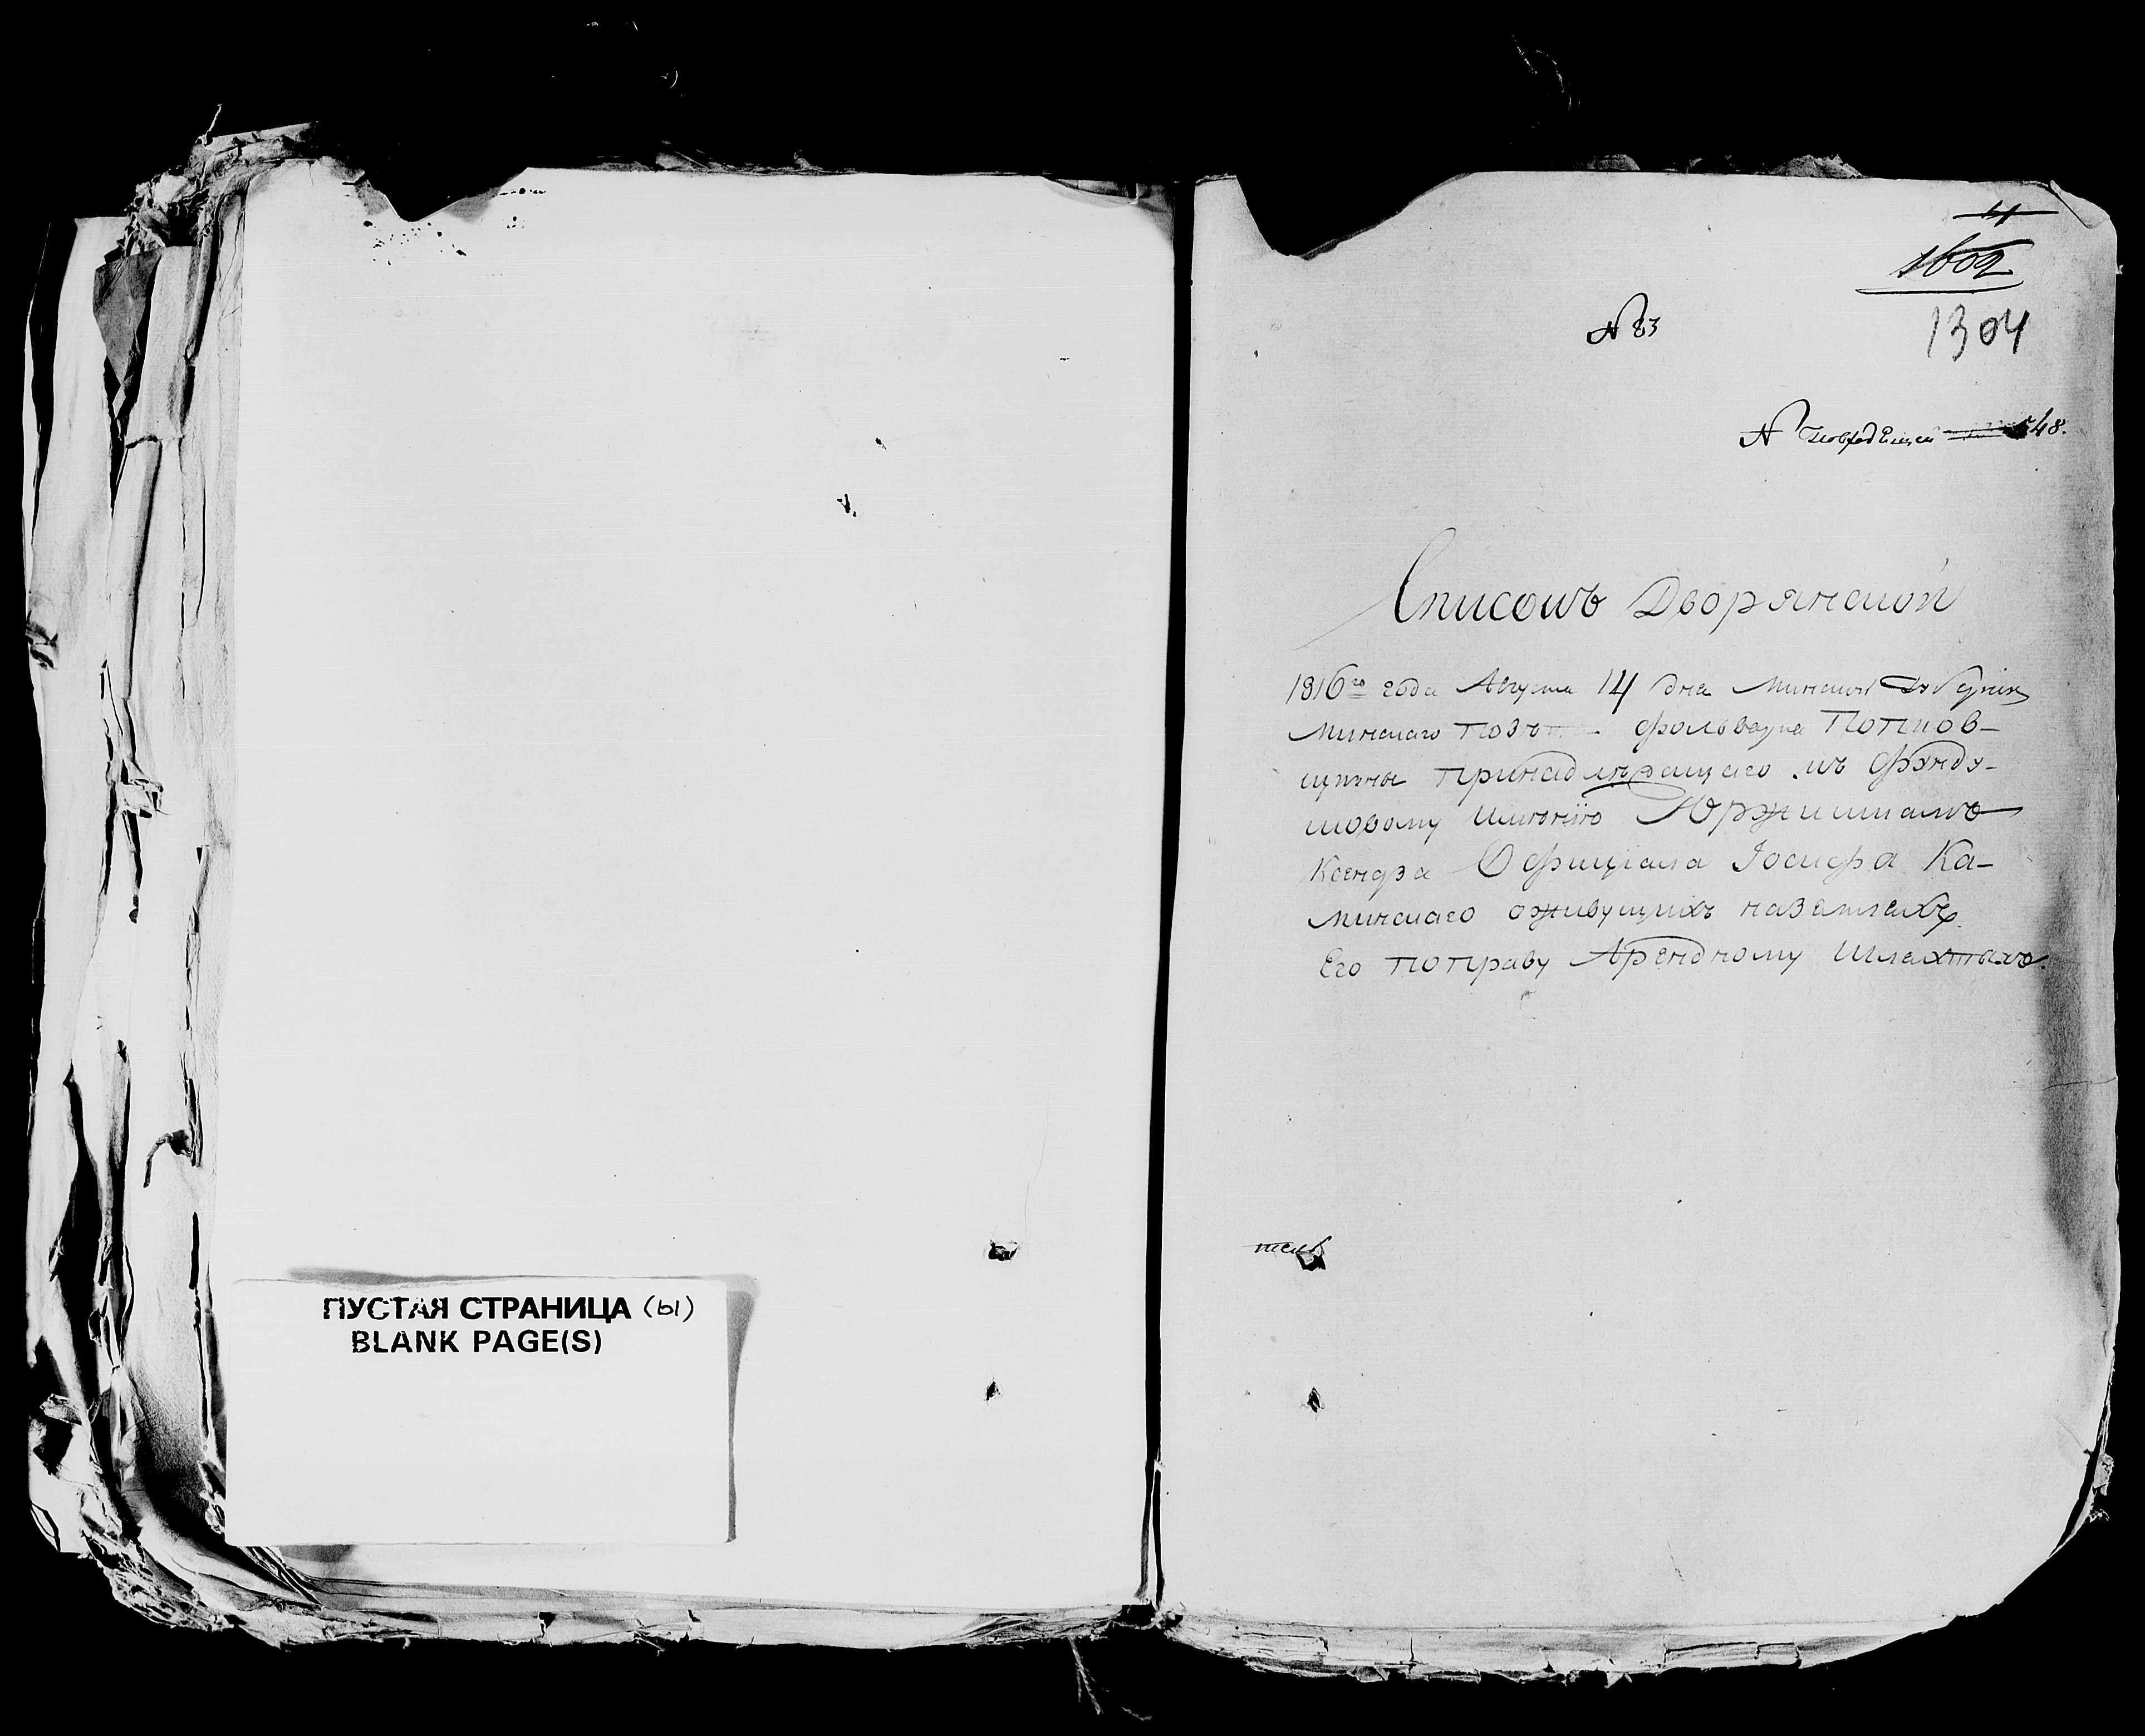 ПУСТАЯ СТРАНИЦА (ы)
BLANK PAGE(S)
1602
1304
N 83
N 548.
Списокъ Дворянской
1816го года Августа 14 дня Минской Губерн
Минскаго Повѣт фольварка Попков-
щизны принадлѣжащаго къ Фунду-
шовому Имѣнїю
Ксендза Офицїала Іосифа Ка-
минскаго оживущихъ на земляхъ
Его поправу Арендному Шляхтыхъ.